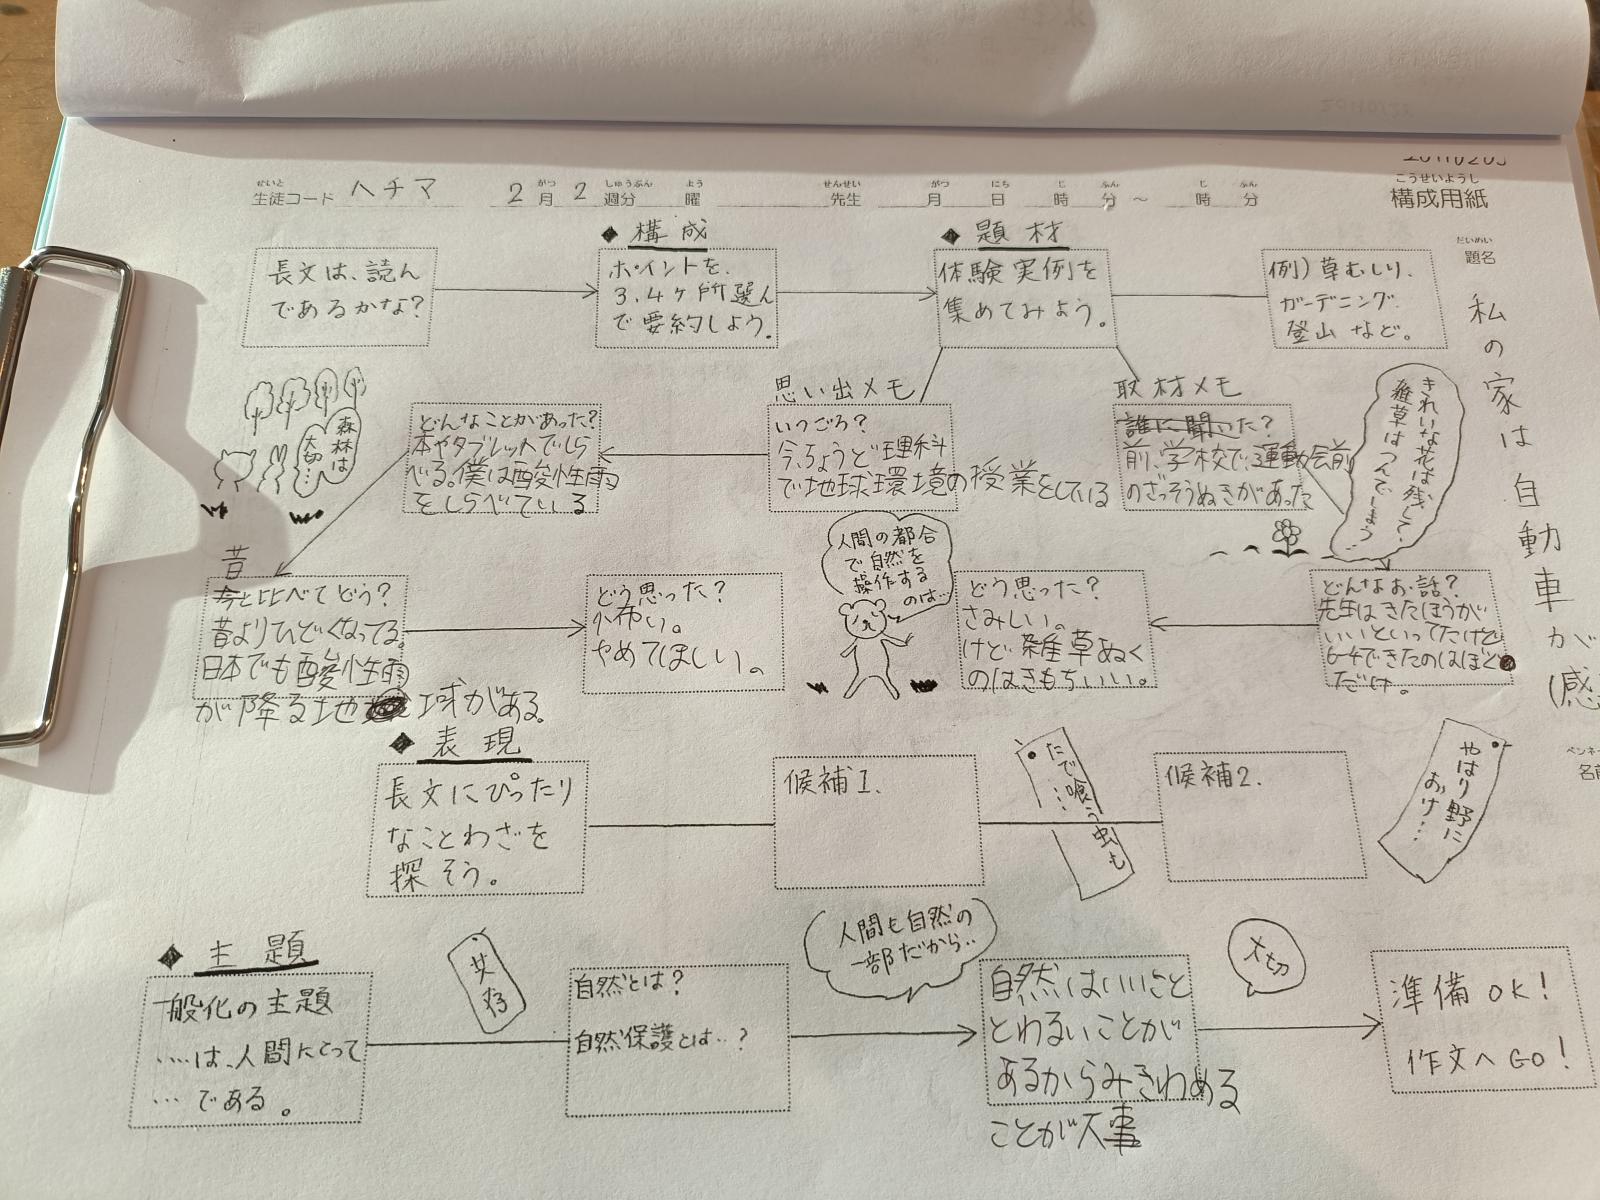 こうせいようし
構成用紙
せいと がつ しゅうぶん よう せんせい がつ にち じ ふん じ ふん
生徒コード ハチマ 2月2週分 曜 先生 月 日 時 分 ～ 時 分
だいめい
題名
私の家は自動車が
(感
◆ 構成
◆ 題材
長文は、読ん
であるかな？
ポイントを、
3.4ヶ所選ん
で要約しよう。
体験実例を
集めてみよう。
例）草むしり、
ガーデニング、
登山など。
思い出メモ
いつごろ？
今、ちょうど理科
で地球環境の授業をしている
取材メモ
誰に聞いた？
前、学校で、運動会前
のざっそうぬきがあった
きれいな花は残して、
雑草はつんでしまう…
どんなことがあった？
本やタブレットでしら
べる。僕は酸性雨
をしらべている
森林は
大切…
昔
今と比べてどう？
昔よりひどくなってる。
日本でも酸性雨
が降る地球がある。
どう思った？
怖い。
やめてほしい。
人間の都合
で自然を
操作する
のは…
どう思った？
さみしい。
けど雑草ぬく
のはきもちいい。
どんなお話？
先生はきたほうが
いいといってたけど
6-4できたのはほど
だけ。
◆ 表現
長文にぴったり
なことわざを
探そう。
候補1.
たで喰う虫も
…
候補2.
やはり野に
おけ…
◆ 主題
一般化の主題
……は、人間にとって
…である。
共存
自然とは？
自然保護とは…？
人間も自然の
一部だから…
自然はいいこと
とわるいことが
あるからみきわめる
ことが大事
大切
準備OK！
作文へGO！